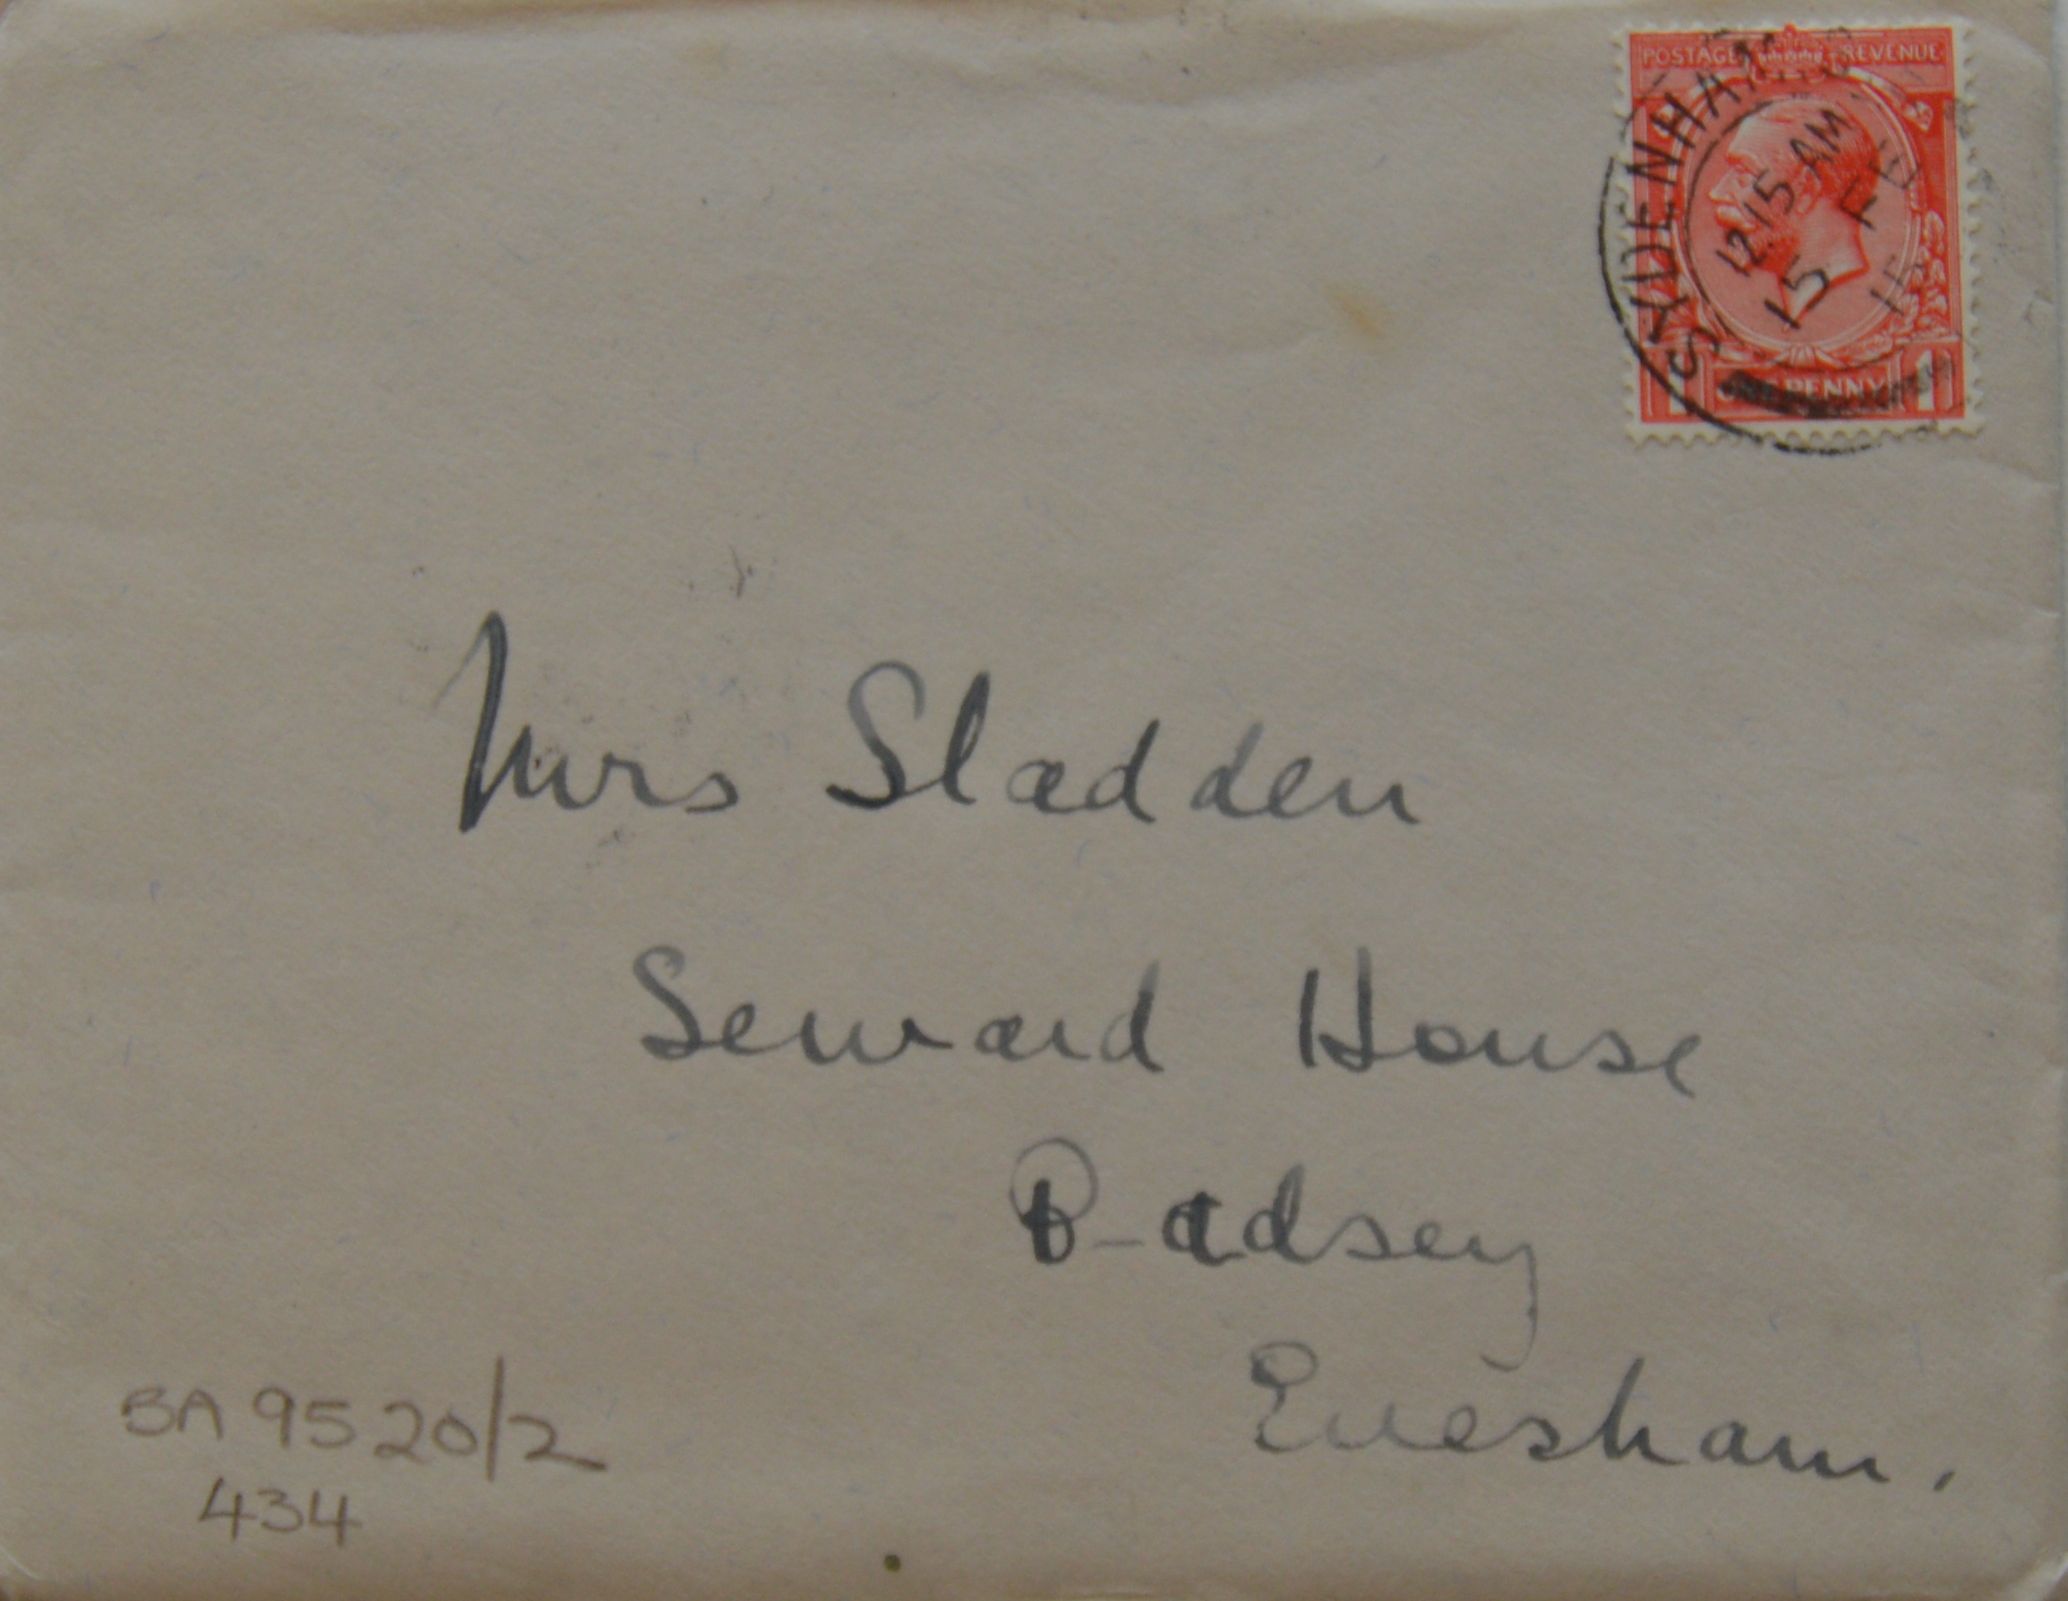 POSTAGE REVENUE
SYDENHAM
12.15 AM
15 FE
15
ONE PENNY
1 1
Mrs Sladden
Seward House
Badsey
Evesham.
BA 9520/2
434